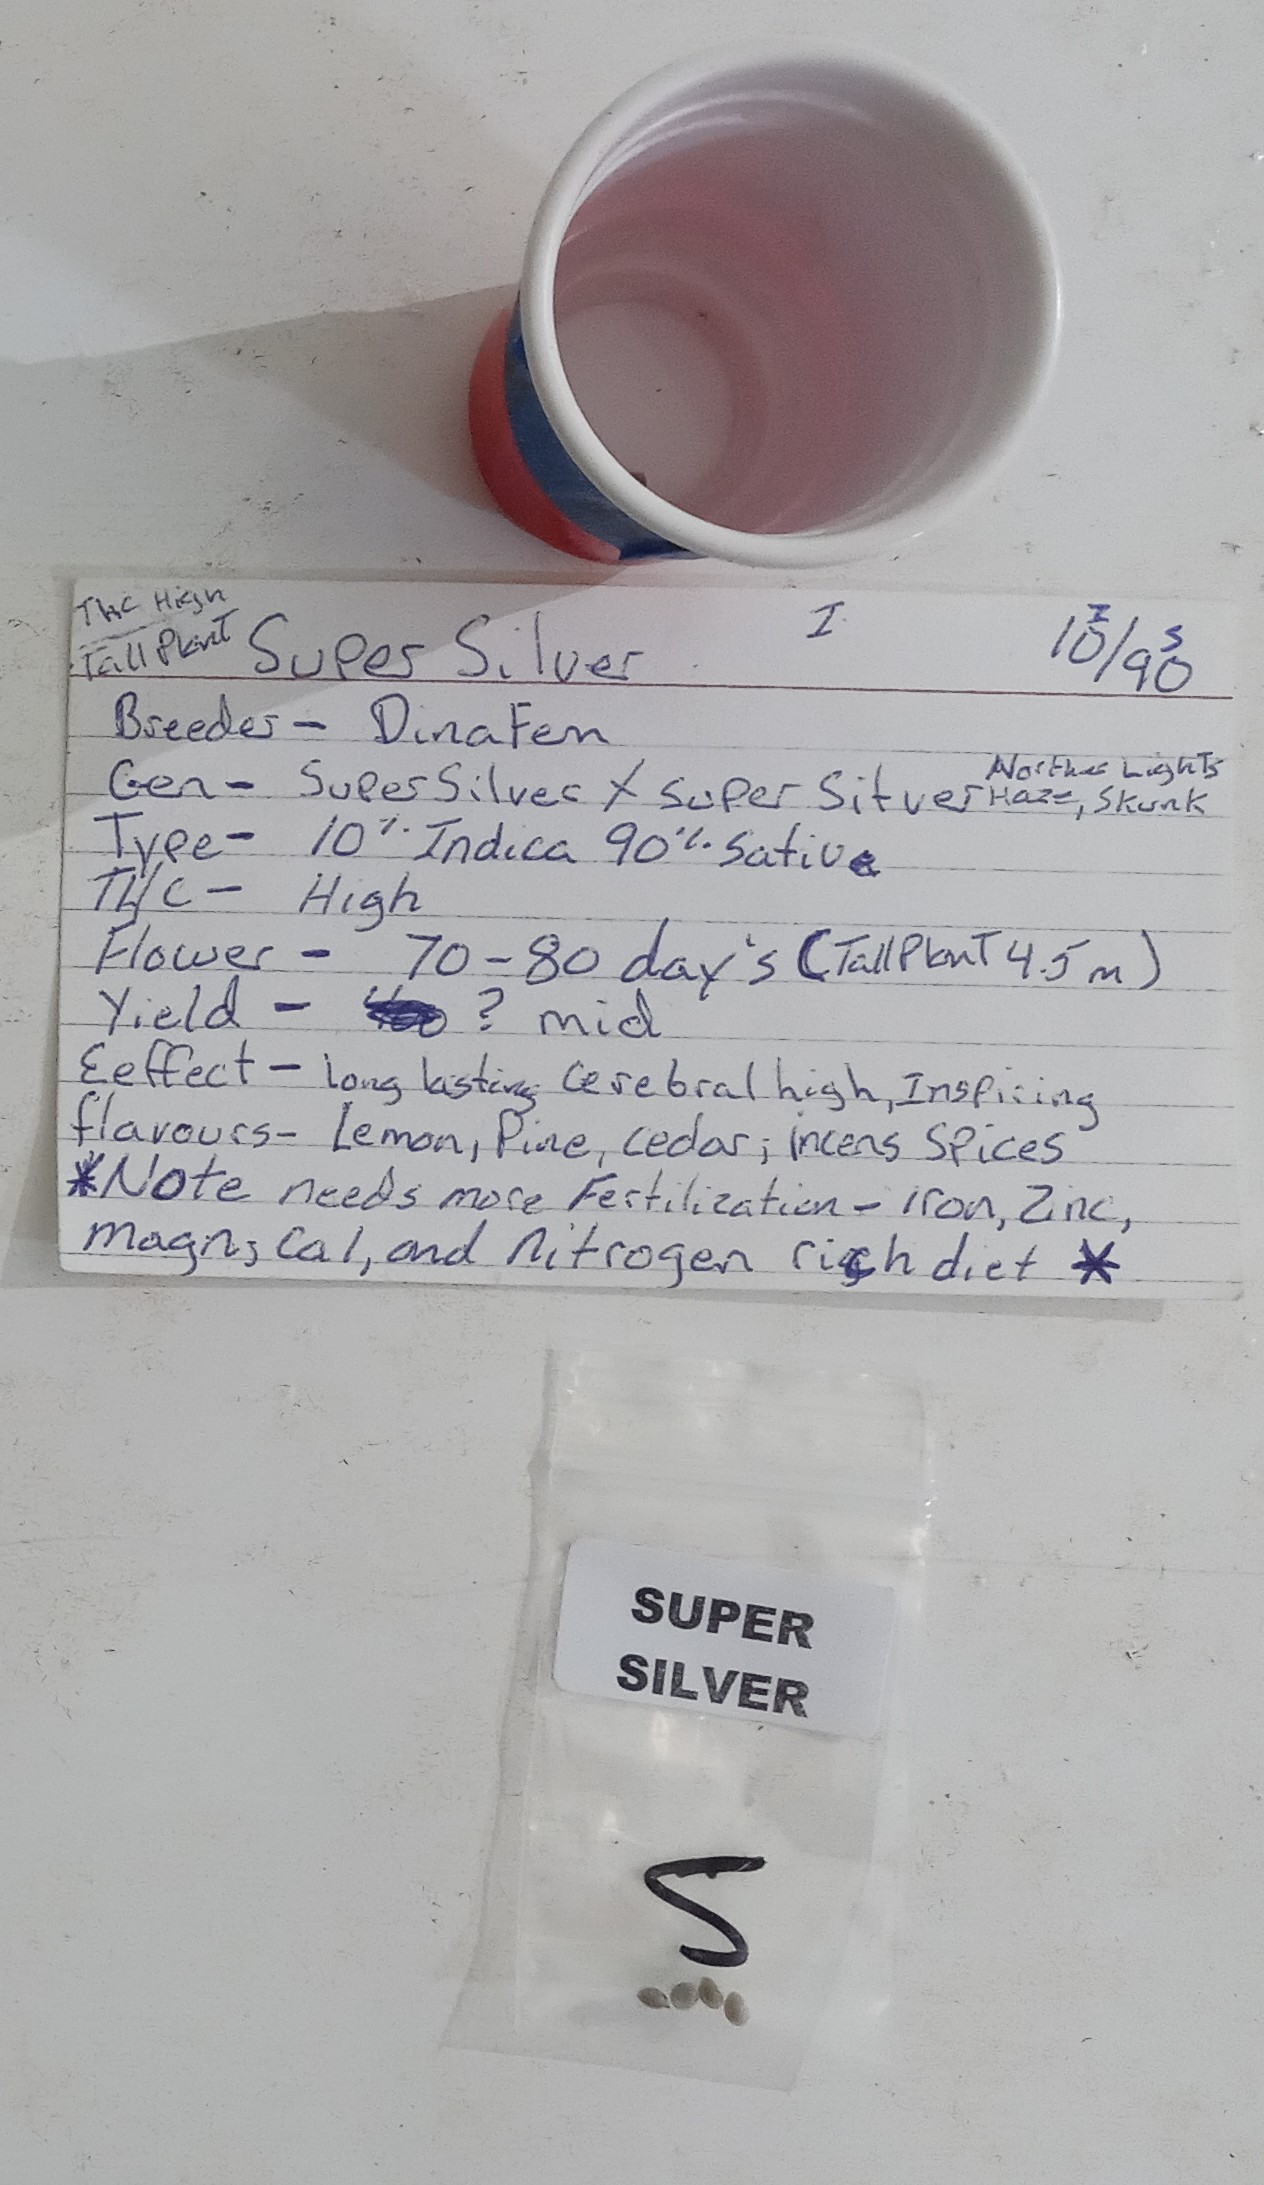 THC High
Tall Plant
Super Silver
I
10/90
I S
Breeder - DinaFem
Gen - Super Silver X Super Silver Norther Lights Haze, Skunk
Type - 10% Indica 90% Sativa
THC - High
Flower - 70-80 day's (Tall Plant 4.5m)
Yield - ? mid
Eeffect - Long lasting cerebral high, Inspiring
flavours - Lemon, Pine, cedar, incens Spices
*Note needs more Fertilization - iron, Zinc,
magn, cal, and nitrogen rich diet *
SUPER
SILVER
S